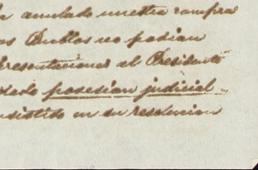 anulado nuestra compra
os Pueblos no podian
presentaciones al Presidente
dado posesion judicial
nsistido en su resolucion